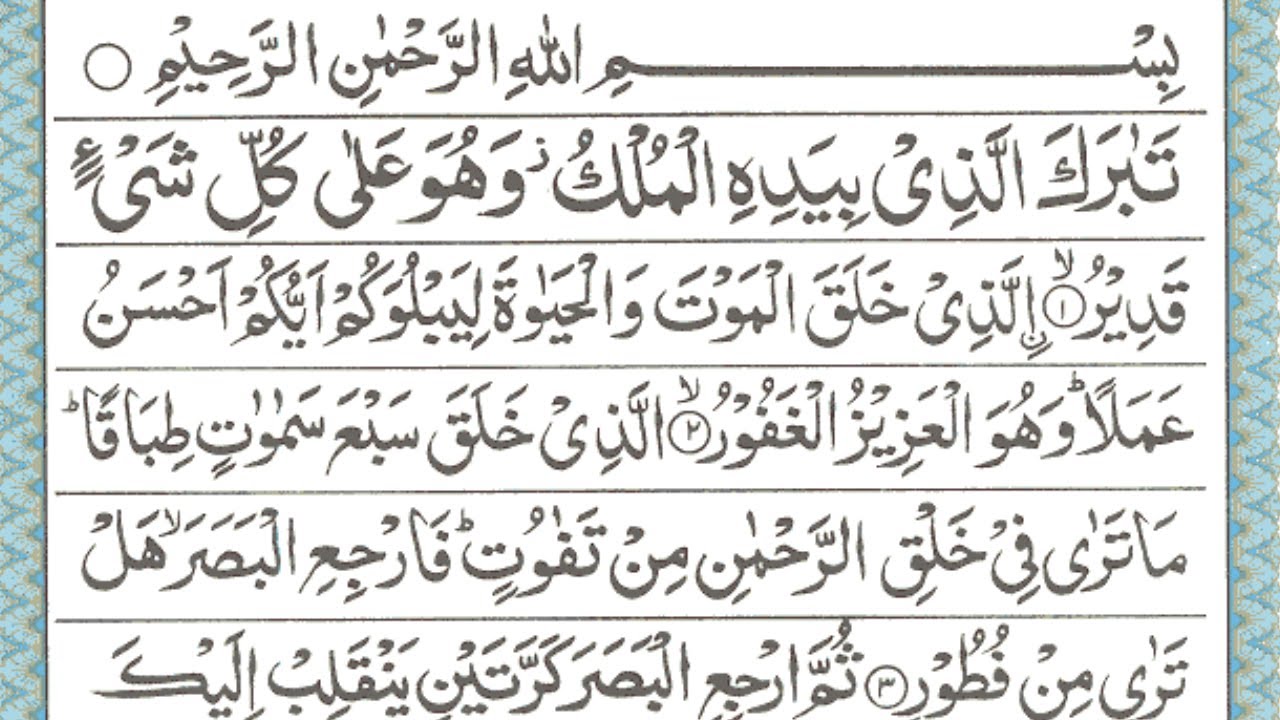 بِسْـــــــــــــمِ اللّٰهِ الرَّحْمٰنِ الرَّحِيْمِ ○
تَبٰرَكَ الَّذِىْ بِيَدِهِ الْمُلْكُ ز وَهُوَ عَلٰى كُلِّ شَىْءٍ
قَدِيْرُ ۙ﴿١﴾ اِۨلَّذِىْ خَلَقَ الْمَوْتَ وَالْحَيٰوةَ لِيَبْلُوَكُمْ اَيُّكُمْ اَحْسَنُ
عَمَلًا ؕ وَهُوَ الْعَزِيْزُ الْغَفُوْرُ ۙ﴿٢﴾ الَّذِىْ خَلَقَ سَبْعَ سَمٰوٰتٍ طِبَاقًا ؕ
مَا تَرٰى فِىْ خَلْقِ الرَّحْمٰنِ مِنْ تَفٰوُتٍ ؕ فَارْجِعِ الْبَصَرَ ۙ هَلْ
تَرٰى مِنْ فُطُوْرٍ ﴿٣﴾ ثُمَّ ارْجِعِ الْبَصَرَ كَرَّتَيْنِ يَنْقَلِبْ اِلَيْكَ